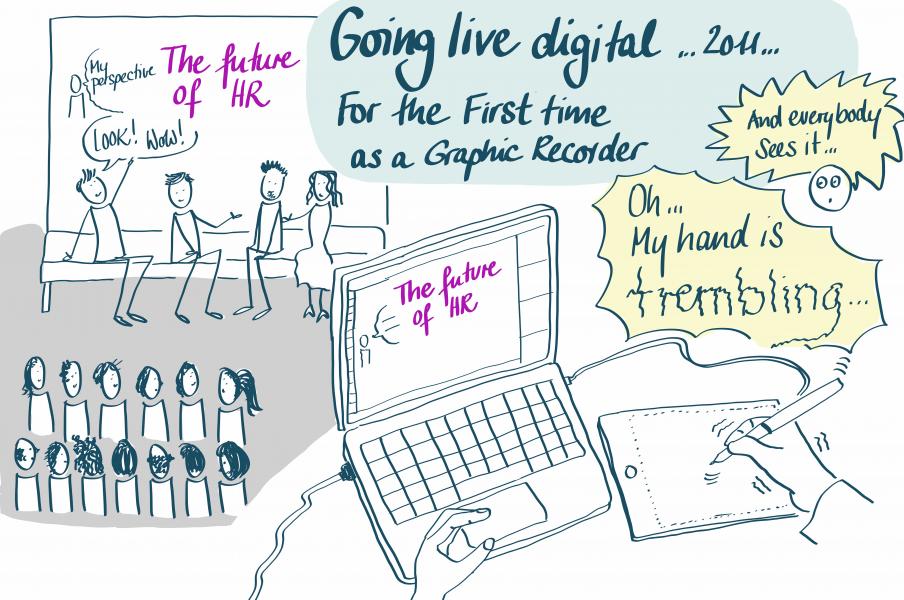 Going live digital ... 2011...
For the First time
as a Graphic Recorder
My
perspective
The future
of HR
LOOK! Wow!
And everybody
sees it...
Oh...
My hand is
trembling...
The future
of HR